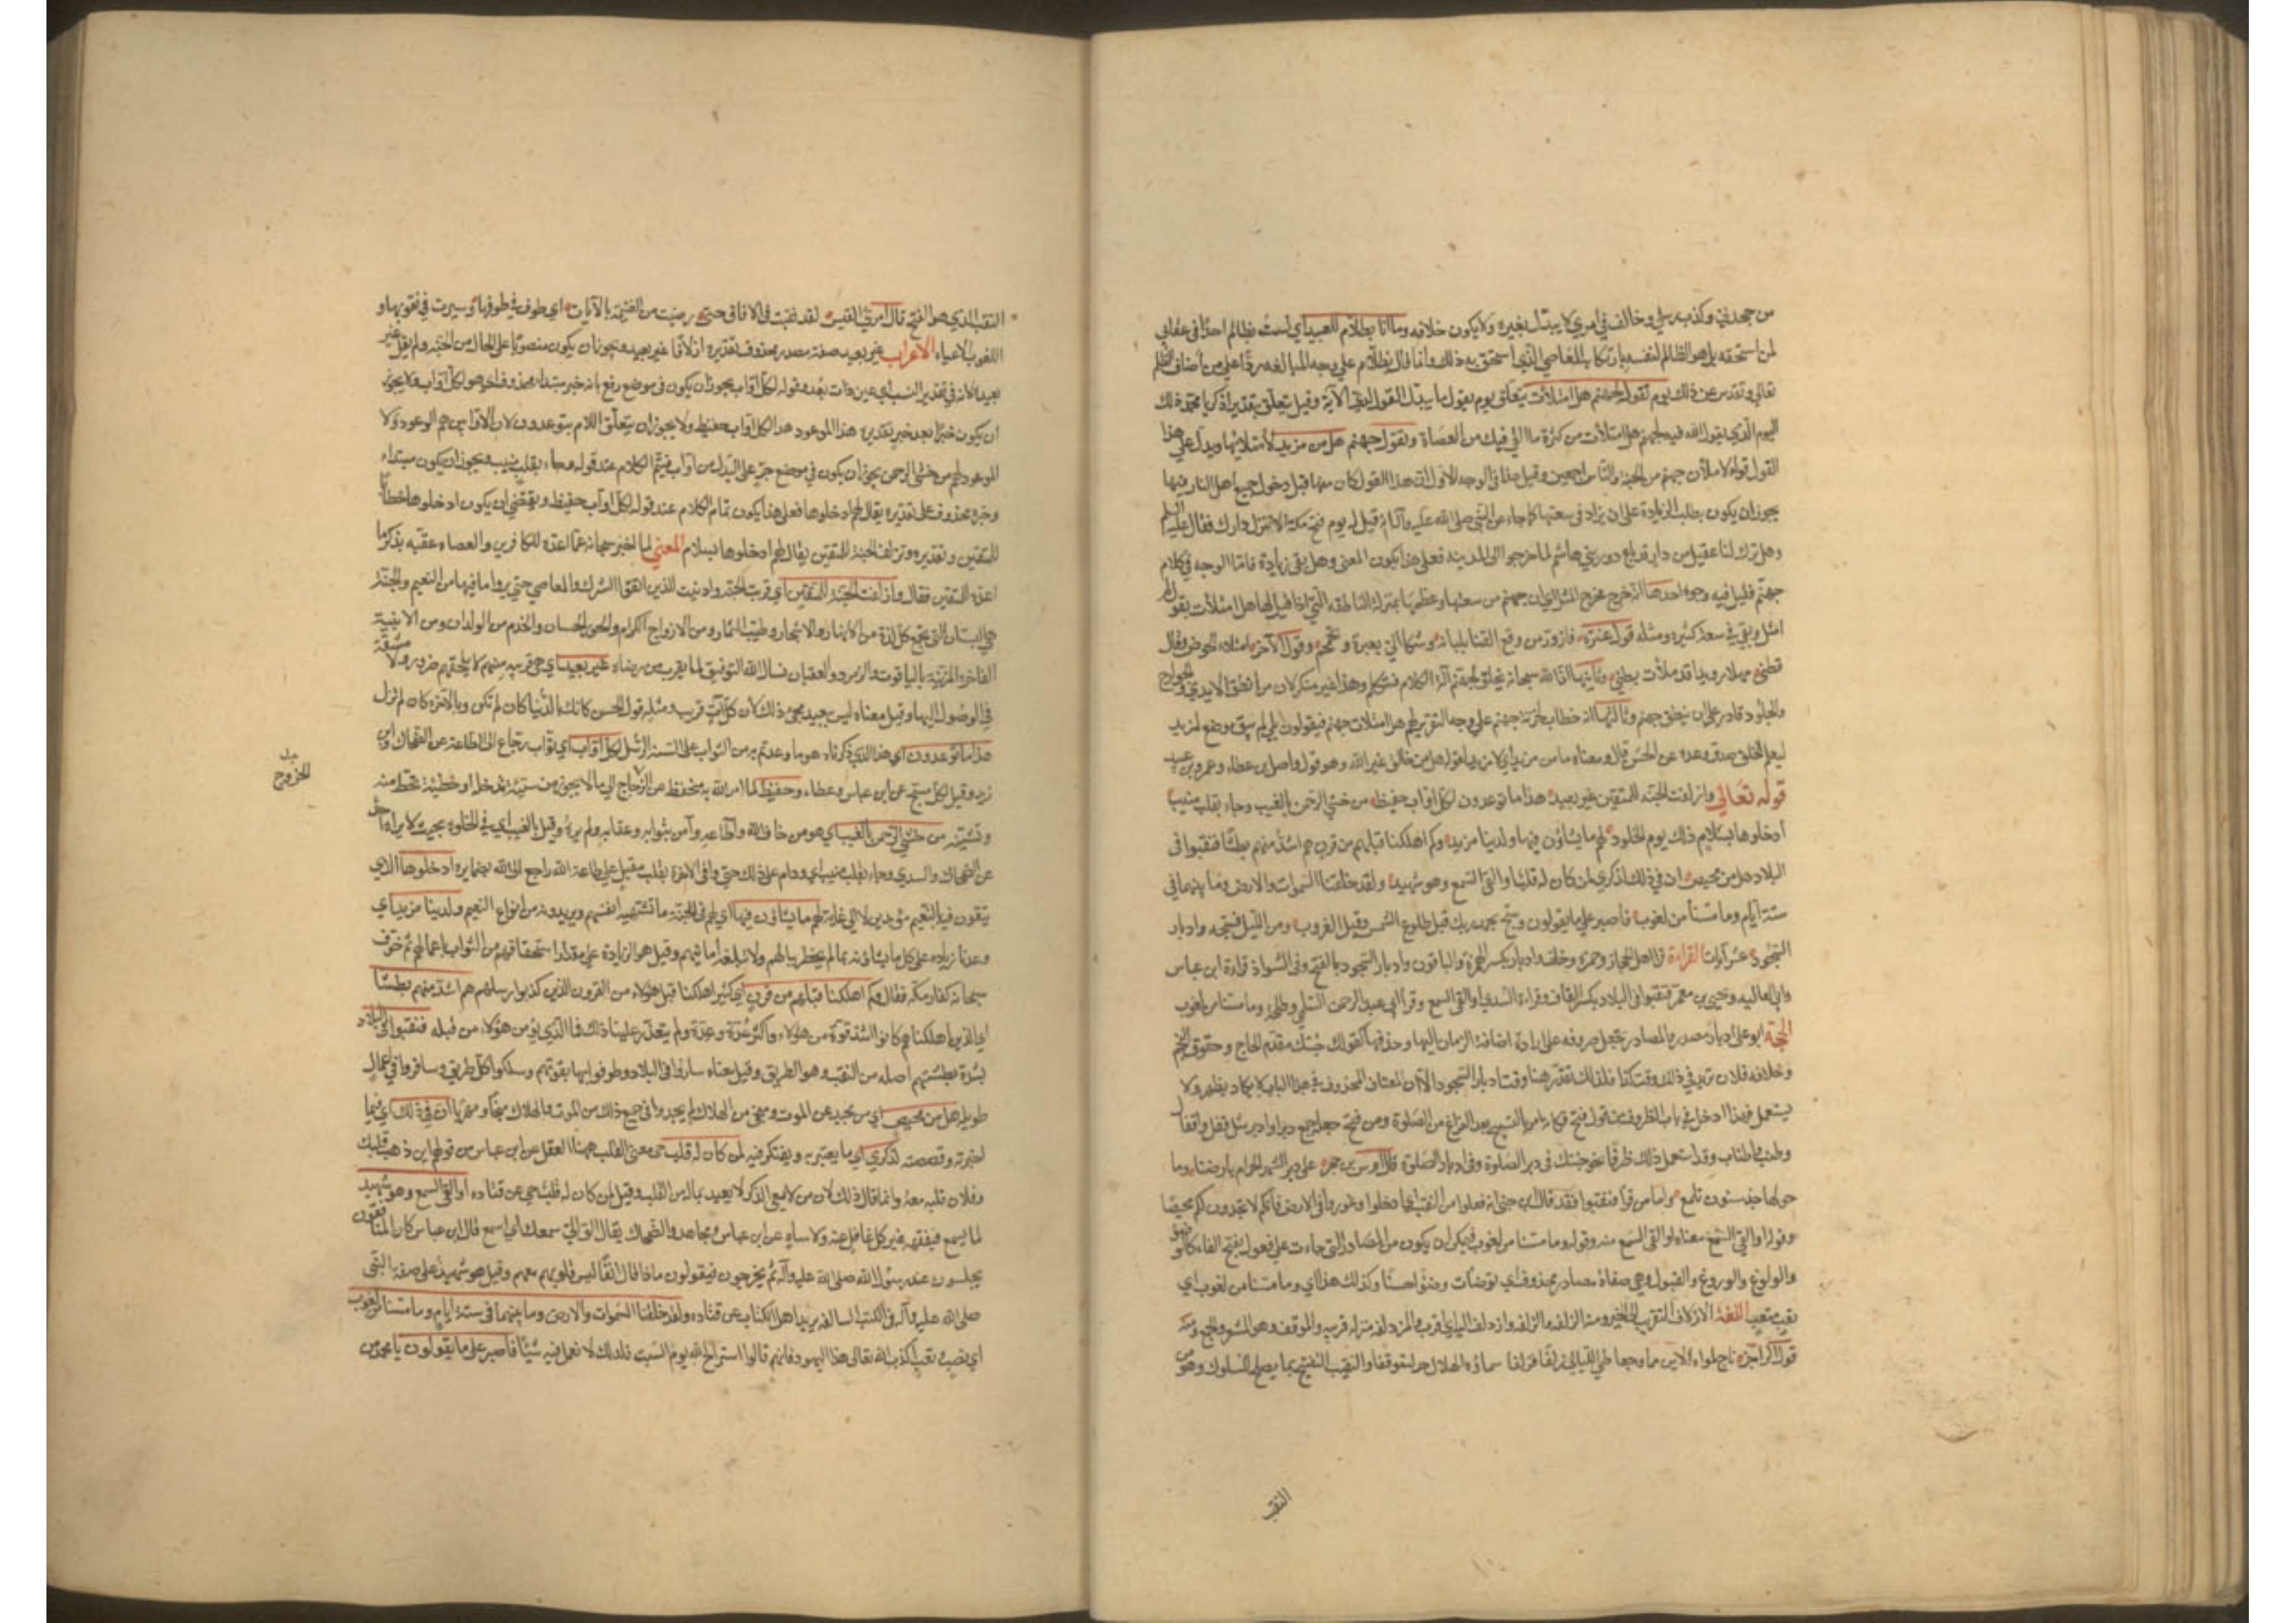 من جحدني وكذب رسلي وخالف في امري لا يبدل بغيره ولا يكون خلافه وما انا بظلام للعبيد اي لست بظالم احدا في عقابي
لمن استحقه بل هو الظالم لنفسه بارتكاب المعاصي التي استحق به ذلك وانما قال بظلام على وجه المبالغة ردا على من أضاف الظلم
تعالى وتقدس عن ذلك يوم نقول لجهنم هل امتلات يتعلق يوم بقوله ما يبدل القول لدي الآية وقيل يتعلق بتقدير اذكر يا محمد ذلك
اليوم الذي يقول الله فيه لجهنم هل امتلات من كثرة ما القي فيك من العصاة وتقول جهنم هل من مزيد لامتلائها ويدل على هذا
القول قوله لاملأن جهنم من الجنة والناس اجمعين وقيل في الوجه الاول ان هذا القول كان منها قبل دخول جميع اهل النار فيها
يجوز ان يكون بطلب الزيادة على ان يزاد في سعتها كما جاء عن النبي صلى الله عليه وآله انه قيل له يوم فتح مكة الا تنزل دارك فقال عليه السلم
وهل ترك لنا عقيل من دار قد باع دور بني هاشم لما خرجوا الى المدينة فعلى هذا يكون المعنى وهل بقي زيادة فاما الوجه في كلام
جهنم فقيل فيه وجوه احدها انه خرج مخرج المثل اي ان جهنم من سعتها وعظمها بمنزلة الناطقة التي اذا قيل لها هل امتلأت تقول لم
امتل وبقي في سعة كثيرة ومثله قول عنترة فازور من وقع القنا بلبانه وشكا الي بعبرة وتحمحم وقول الآخر امتلاء الحوض وقال
قطني مهلا رويدا قد ملأت بطني وثانيها ان الله سبحانه يخلق لجهنم آلة الكلام فتتكلم وهذا غير منكر لان من انطق الايدي والجوارح
والجلود قادر على ان ينطق جهنم وثالثها انه خطاب لخزنة جهنم على وجه التقرير لهم هل امتلات جهنم فيقولون بلى لم يبق موضع لمزيد
ليعلم الخلق صدق وعده عن الحسن قال ومعناه ما من مزيد اي لا مزيد لقوله هل من خالق غير الله وهو قول واصل بن عطاء وعمرو بن عبيد
قوله تعالى وازلفت الجنة للمتقين غير بعيد هذا ما توعدون لكل اواب حفيظ من خشي الرحمن بالغيب وجاء بقلب منيب
ادخلوها بسلام ذلك يوم الخلود لهم ما يشاؤن فيها ولدينا مزيد وكم اهلكنا قبلهم من قرن هم اشد منهم بطشا فنقبوا في
البلاد هل من محيص ان في ذلك لذكرى لمن كان له قلب او القى السمع وهو شهيد ولقد خلقنا السموات والارض وما بينهما في
ستة ايام وما مسنا من لغوب فاصبر على ما يقولون وسبح بحمد ربك قبل طلوع الشمس وقبل الغروب ومن الليل فسبحه وادبار
السجود عشر آيات القراءة قرا اهل الحجاز وحمزة وخلف وادبار بكسر الهمزة والباقون وادبار السجود بالفتح وفي الشواذ قراءة ابن عباس
وابي العاليه ويحيى بن يعمر فنقبوا في البلاد بكسر القاف وقراءة السدي او القي السمع وقرا ابي عبد الرحمن السلمي وطلحة وما مسنا من لغوب
الحجة ابو علي ادبار مصدر والمصادر تجعل ظروفا على ارادة اضافة الزمان اليها وحذفها كقولك جئتك مقدم الحاج وخفوق النجم
وخلافة فلان تريد في ذلك وقت كذا فكذلك تقدر هنا وقت ادبار السجود الا ان المضاف المحذوف في هذا الباب لا يكاد يظهر ولا
يستعمل فهذا ادخل في باب الظروف من قول من فتح فكانه امر بالتسبيح بعد الفراغ من الصلوة ومن فتح جعله جمع دبر او دبر مثل قفل واقفال
وطنب واطناب وقد استعمل ذلك ظرفا نحو جئتك في دبر الصلوة وفي ادبار الصلوة قال اوس بن حجر على دبر الشهر الحرام بارضنا وما
حولها جدبت سنون تلمع واما من قرا فنقبوا فقد قال ابن جني انه فعلوا من النقب اي ادخلوا وغوروا في الارض فانكم لا تجدون لكم محيصا
وقوله او القي السمع معناه او القي السمع منه وقوله وما مسنا من لغوب فيمكن ان يكون من المصادر التي جاءت على فعول بفتح الفاء كالوضوء
والولوغ والوروغ والقبول وهي صفات مصادر محذوفة اي توضات وضوءا حسنا وكذلك هذا اي وما مسنا من لغوب اي
تعب متعب اللغة الازلاف التقريب الى الخير ومنه الزلفة والزلفى وازدلف اليه اي اقترب والمزدلفة منزلة قريبة من الموقف وهو المشعر وجمع ومنه
قول الراجز ناج طواه الاين مما وجفا طي الليالي زلفا فزلفا سماوة الهلال حتى احقوقفا والتنقيب التفتيح بما يصلح للسلوك وهو من
النقب
النقب الذي هو الفتح قال امرؤ القيس لقد نقبت في الافاق حتى رضيت من الغنيمة بالاياب اي طوفت في طرقها وسيرت في نقوبها و
اللغوب الاعياء الاعراب غير بعيد صفة مصدر محذوف تقديره ازلافا غير بعيد ويجوز ان يكون منصوبا على الحال من الجنة ولم يقل غير
بعيدة لانه في تقدير النسب اي غير ذات بعد وقوله لكل اواب يجوز ان يكون في موضع رفع بانه خبر مبتدا محذوف اي هو لكل اواب ولا يجوز
ان يكون خبرا بعد خبر تقديره هذا الموعود هذا لكل اواب حفيظ ولا يجوز ان يتعلق اللام بتوعدون لان الاوابين هم الموعودون لا
الموعود لهم من خشي الرحمن يجوز ان يكون في موضع جر على البدل من اواب فيتم الكلام عند قوله وجاء بقلب منيب ويجوز ان يكون مبتداء
وخبره محذوف على تقديره يقال لهم ادخلوها فعلى هذا يكون تمام الكلام عند قوله لكل اواب حفيظ ويقتضي ان يكون ادخلوها خطابا
للمتقين وتقديره وتزلف الجنة للمتقين يقال لهم ادخلوها بسلام المعنى لما اخبر سبحانه عما اعده للكافرين والعصاه عقبه بذكر ما
اعده للمتقين فقال وازلفت الجنة للمتقين اي قربت الجنة وادنيت للذين اتقوا الشرك والمعاصي حتى يروا ما فيها من النعيم والجنة
هي البستان التي يجمع كل لذة من الانهار والاشجار وطيب الثمار ومن الازواج الكرام والحور الحسان والخدم من الولدان ومن الابنية
الفاخرة المزينة بالياقوت والزمرد والعقيان نسال الله التوفيق لما يقرب من رضاه غير بعيد اي هي قريبة منهم لا يلحقهم ضرر ولا مشقة
في الوصول اليها وقيل معناه ليس ببعيد مجئ ذلك لان كل آت قريب ومثله قول الحسن كانك بالدنيا كان لم تكن وبالآخرة كان لم تزل
هذا ما توعدون اي هذا الذي ذكرناه هو ما وعدتم به من الثواب على السنة الرسل لكل اواب اي تواب رجاع الى الطاعة عن الضحاك وابن
زيد وقيل لكل مسبح عن ابن عباس وعطاء وحفيظ لما امر الله به متحفظ عن الخروج الى ما لا يجوز من سيئة تدخلها او خطيئة تحط منه
وتشينه من خشي الرحمن بالغيب اي هو من خاف الله واطاعه وآمن بثوابه وعقابه ولم يره وقيل بالغيب اي في الخلوة بحيث لا يراه احد
عن الضحاك والسدي وجاء بقلب منيب اي ودام على ذلك حتى وافى الاخرة بقلب مقبل على طاعة الله راجع الى الله بضمايره ادخلوها الذي
يبقون فيه النعيم مؤبدين لا الى غاية لهم ما يشاؤن فيها اي لهم في الجنة ما تشتهيه انفسهم ويريدونه من انواع النعيم ولدينا مزيد اي
وعدنا زيادة على كل ما يشاؤنه مما لم يخطر ببالهم ولا تبلغه امانيهم وقيل هو الزيادة على مقدار استحقاقهم من الثواب باعمالهم ثم خوف
سبحانه كفار مكة فقال وكم اهلكنا قبلهم من قرن اي كثيرا اهلكنا قبل هؤلاء من القرون الذين كذبوا رسلهم هم اشد منهم بطشا
اي الذين اهلكناهم كانوا اشد قوة من هؤلاء واكثر عدة وعدة ولم يتعذر علينا ذلك فما الذي يؤمن هؤلاء من مثله فنقبوا في البلاد
بشدة بطشهم اصله من النقب وهو الطريق وقيل معناه ساروا في البلاد وطوفوا فيها بقوتهم وسلكوا كل طريق وسافروا في اعمال
طويلة هل من محيص اي من محيد عن الموت ومنجى من الهلاك لم يجدوا في جميع ذلك من الموت والهلاك منجا ومهربا ان في ذلك اي فيما
اخبرته وقصصته لذكرى اي ما يعتبر به ويفتكر فيه لمن كان له قلب معنى القلب ههنا العقل عن ابن عباس من قولهم اين ذهب قلبك
وفلان قلبه معه وانما قال ذلك لان من لا يعي الذكر لا يعتد بماله من القلب وقيل لمن كان له قلب حي عن قتاده او القى السمع وهو شهيد
لما يسمع فيفقهه غير كل غافل عنه ولا ساه عن ابن عباس ومجاهد والضحاك يقال الق الي سمعك اي اسمع قال ابن عباس كان المنافقون
يجلسون عند رسول الله صلى الله عليه وآله ثم يخرجون فيقولون ماذا قال انفا ليس قلوبهم معهم وقيل هو شهيد على صفة النبي
صلى الله عليه وآله في الكتب السالفه يريد اهل الكتاب عن قتاده ولقد خلقنا السموات والارض وما بينهما في ستة ايام وما مسنا من لغوب
اي نصب وتعب اكذب الله تعالى هذا اليهود فانهم قالوا استراح الله يوم السبت فلذلك لا نعمل فيه شيئا فاصبر على ما يقولون يا محمد من
الخروج